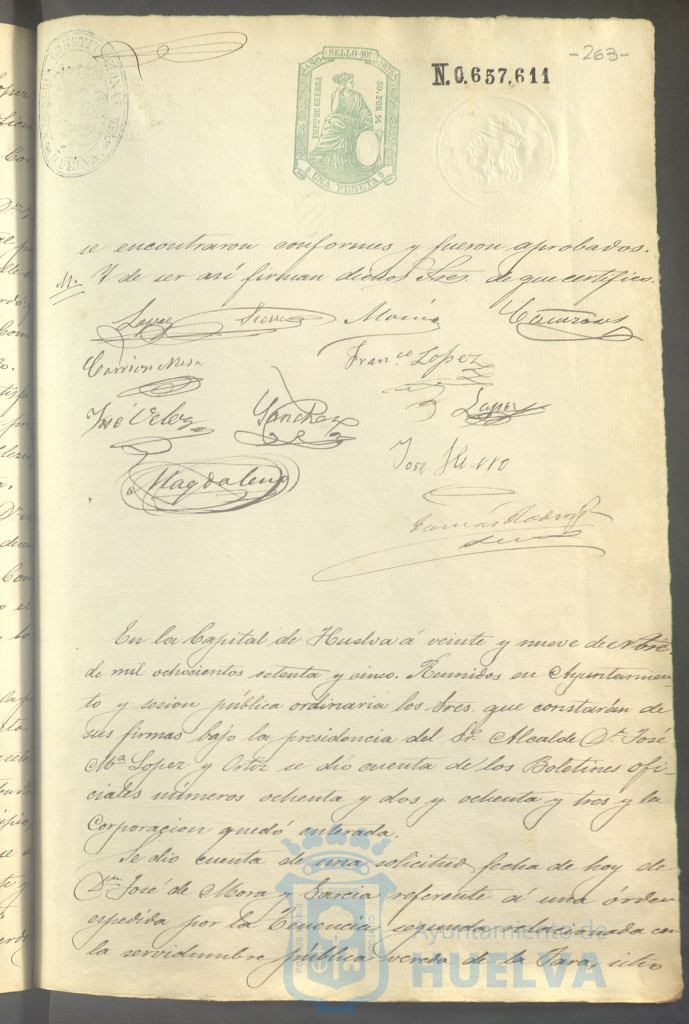 -263-
AÑO SELLO 10º 1875
IMPtº DE GUERRA
50. POR %
UNA PESETA
N.0.657,611
HUELVA
se encontraron conformes y fueron aprobados.
Y de ser así firman dichos Sres. de que certifico.
Lopez
Mª
Carrion Mesa
Franco Lopez
José Velez
Sanchez
Lopez
Magdaleno
Jose
Tomás Rodrigz
En la Capital de Huelva á veinte y nueve de Nbre.
de mil ochocientos setenta y cinco. Reunidos en Ayuntamien-
to y sesion pública ordinaria los Sres. que constarán de
sus firmas bajo la presidencia del Sr. Alcalde Dn. José
Mª Lopez y Ortiz se dio cuenta de los Boletines ofi-
ciales números ochenta y dos y ochenta y tres y la
Corporacion quedó enterada.
Se dio cuenta de una solicitud fecha de hoy de
Dn. José de Mora y Garcia referente á una órden
espedida por la Tenencia segunda relacionada con
la servidumbre pública vereda de la sitio
Ayuntamiento de
HUELVA